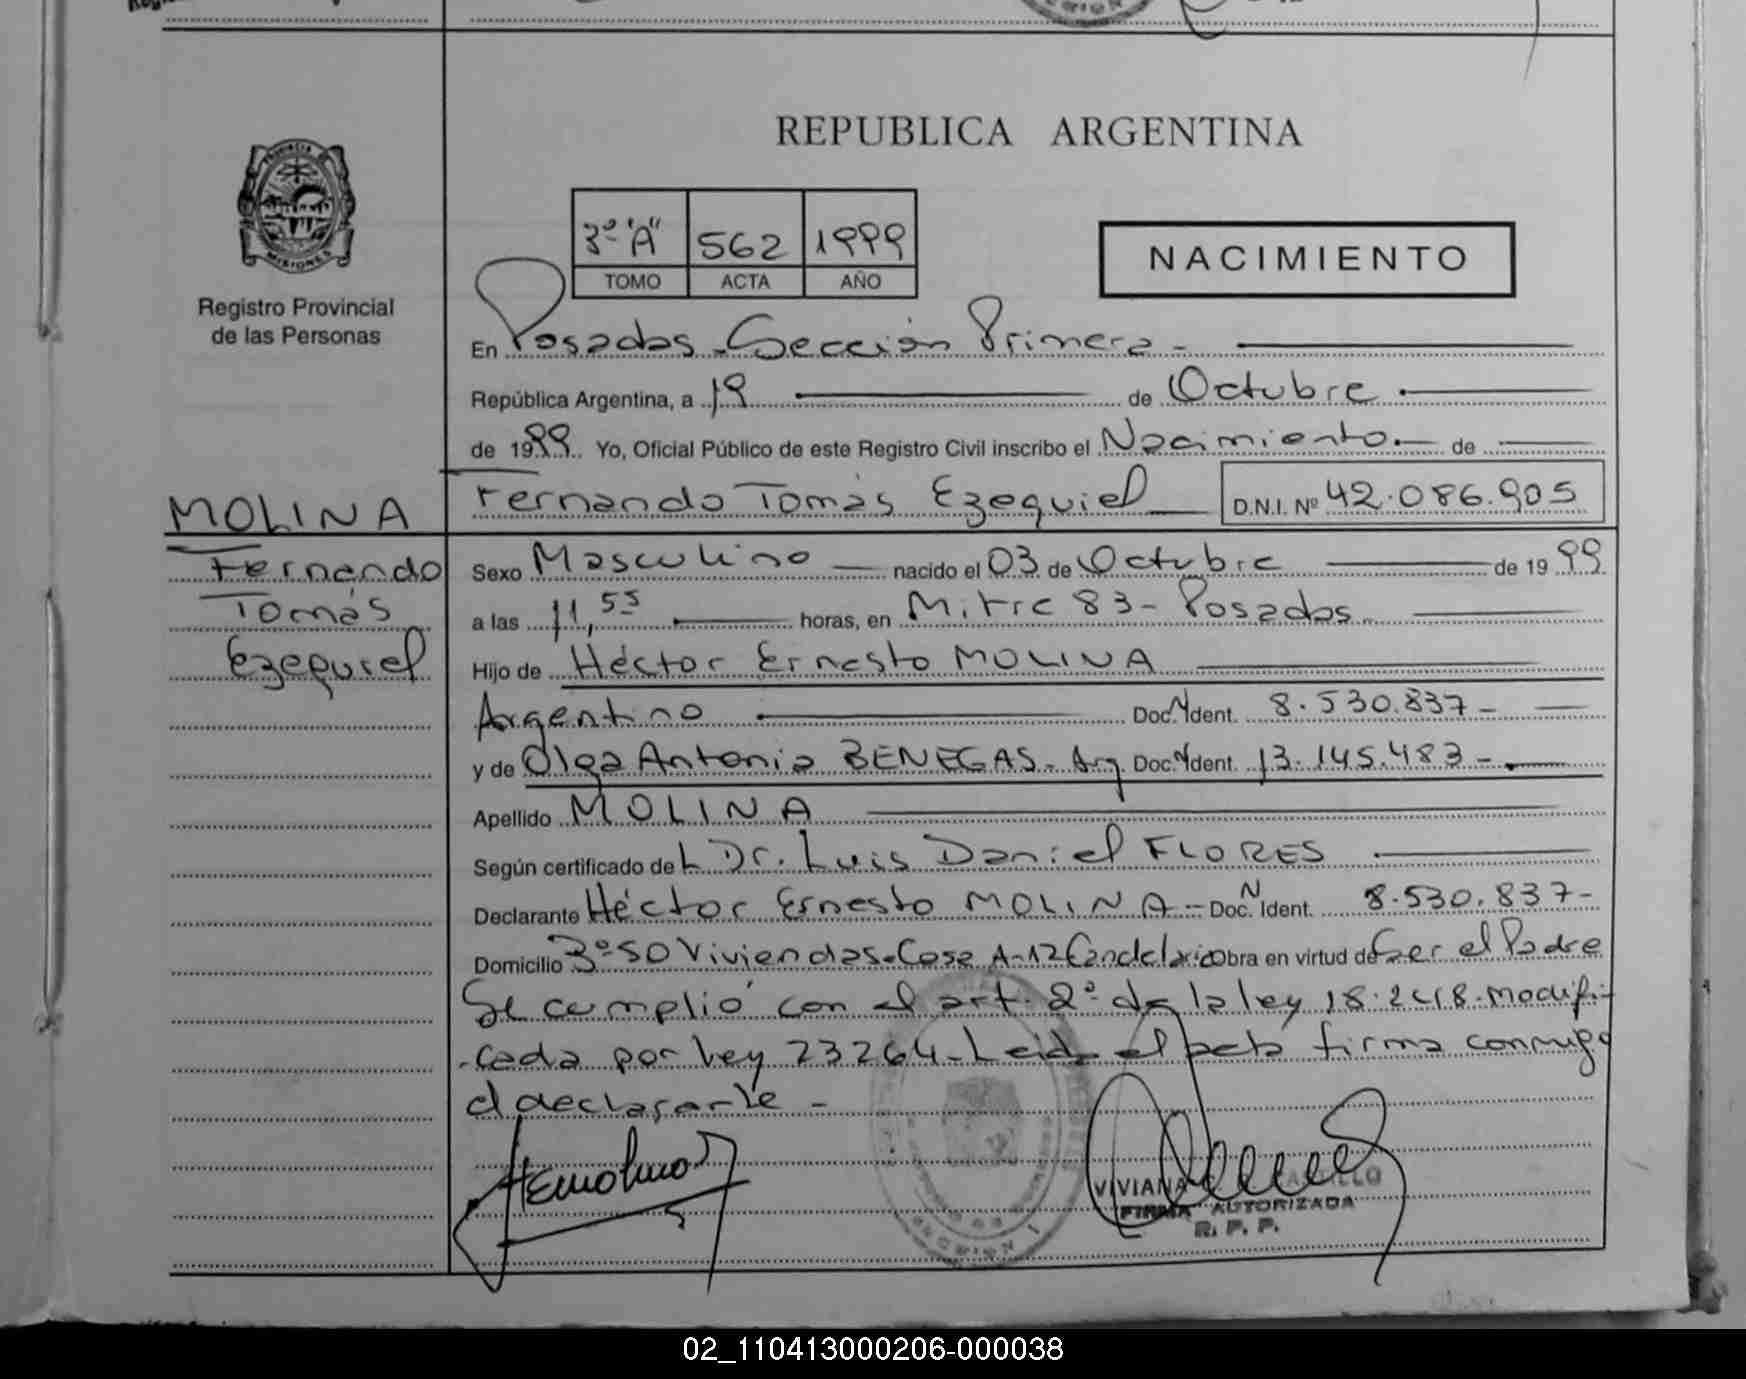 REPUBLICA ARGENTINA
PROVINCIA DE
MISIONES
Registro Provincial
de las Personas
3º "A" 562 1999
TOMO ACTA AÑO
NACIMIENTO
En Posadas - Sección Primera -
República Argentina, a 19 de Octubre
de 1999. Yo, Oficial Público de este Registro Civil inscribo el Nacimiento de
MOLINA Fernando Tomás Ezequiel D.N.I. Nº 42.086.905
Fernando
Tomás
Ezequiel
Sexo Masculino nacido el 03 de Octubre de 1999
a las 11,55 horas, en Mitre 83 - Posadas
Hijo de Héctor Ernesto MOLINA
Argentino Doc. N Ident. 8.530.837 -
y de Olga Antonia BENEGAS - Arg. Doc. N Ident. 13.145.483 -
Apellido MOLINA
Según certificado del Dr. Luis Daniel FLORES
Declarante Héctor Ernesto MOLINA - Doc. N Ident. 8.530.837 -
Domicilio 3º 50 Viviendas - Casa A-12 Candelaria Obra en virtud de Ser el Padre
Se cumplió con el art. 2º de la ley 18.248 - modifi-
-cada por ley 23264 - Leida el acta firma conmigo
el declarante -
VIVIANA
FIRMA AUTORIZADA
R. P. P.
02_110413000206-000038